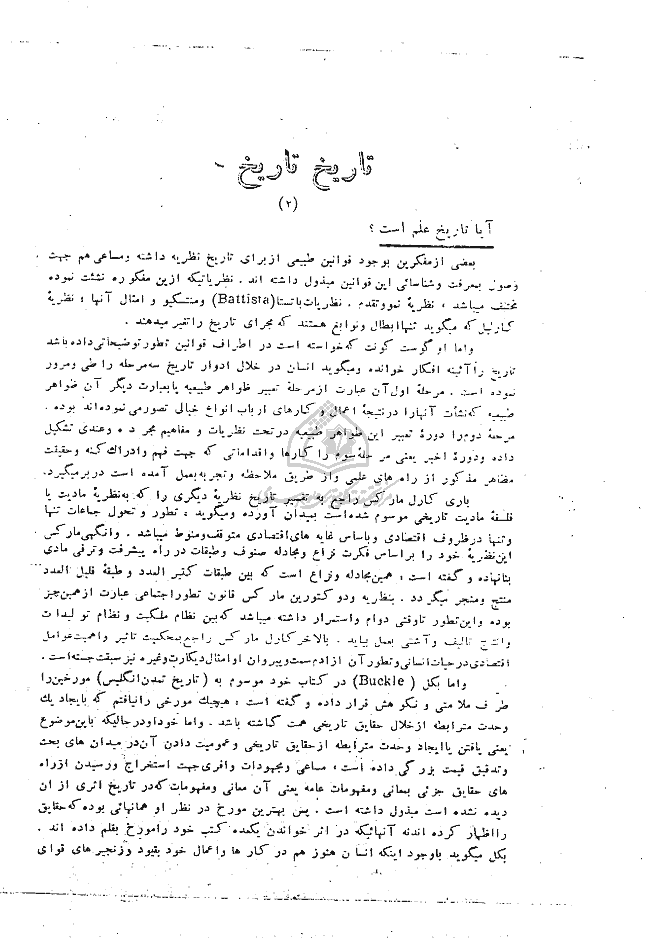 تاریخ تاریخ -
(۲)
آیا تاریخ علم است ؟
بعضی ازمفکرین بوجود قوانین طبیعی ازبرای تاریخ نظریه داشته ومساعی هم جهت
وصول بمعرفت وشناسائی این قوانین مبذول داشته اند . نظریاتیکه ازین مفکوره نشئت نموده
مختلف میباشد ، نظریهٔ نمووتقدم . نظریات باتستا (Battista) ومنتسکیو و امثال آنها ؛ نظریهٔ
کارلیل که میگوید تنها ابطال ونوابغ هستند که مجرای تاریخ را تغیر میدهند .
واما او گوست کونت که خواسته است در اطراف قوانین تطور توضیحاتی داده باشد
تاریخ را آئینه افکار خوانده ومیگوید انسان در خلال ادوار تاریخ سه مرحله را طی ومرور
نموده است . مرحلهٔ اول آن عبارت ازمرحلهٔ تعبیر ظواهر طبیعیه یابعبارت دیگر آن ظواهر
طبیعیه که نشأت آنهارا درنتیجهٔ اعمال و کارهای ارباب انواع خیالی تصور می نموده اند بوده .
مرحلهٔ دوم را دورهٔ تعبیر این ظواهر طبیعیه درتحت نظریات و مفاهیم مجرده وعندی تشکیل
داده ودورهٔ اخیر یعنی مرحلهٔ سوم را کارها واقداماتی که جهت فهم وادراک کنه وحقیقت
مظاهر مذکور از راه های علمی واز طریق ملاحظه وتجربه بعمل آمده است در بر میگیرد.
باری کارل مارکس راجع به تفسیر تاریخ نظریهٔ دیگری را که به نظریهٔ مادیت یا
فلسفهٔ مادیت تاریخی موسوم شده است بمیدان آورده ومیگوید ، تطور و تحول جماعات تنها
وتنها درظروف اقتصادی وباساس غایه های اقتصادی متوقف ومنوط میباشد . وانگهی مارکس
این نظریهٔ خود را براساس فکرت نزاع ومجادله صنوف وطبقات در راه پیشرفت وترقی مادی
بنانهاده و گفته است ، همین مجادله ونزاع است که بین طبقات کثیر العدد و طبقهٔ قلیل العدد
منتج ومنجر میگردد . بنظریه ودوکتورین مارکس قانون تطور اجتماعی عبارت ازهمین چیز
بوده واین تطور تاوقتی دوام واستمرار داشته میباشد که بین نظام ملکیت و نظام تولیدات
وانتاج تالیف وآشتی بعمل بیاید . بالاخر کارل مارکس راجع بمحکیت تاثیر واهمیت عوامل
اقتصادی در حیات انسانی وتطور آن ازادم سمت وپیروان او امثال دیکارت وغیره نیز سبقت جسته است .
واما بکل (Buckle) در کتاب خود موسوم به (تاریخ تمدن انگلیس) مورخین را
طرف ملامتی و نکوهش قرار داده و گفته است ، هیچیک مورخی را نیافتم که بایجاد یك
وحدت مترابطه ازخلال حقایق تاریخی همت گماشته باشد . واما خود او درحالیکه باین موضوع
یعنی یافتن یاایجاد وحدت مترابطه ازحقایق تاریخی و عمومیت دادن آن در میدان های بحث
وتدقیق قیمت بزرگی داده است ، مساعی ومجهودات وافری جهت استخراج ورسیدن ازراه
های حقایق جزئی بمعانی ومفهومات عامه یعنی آن معانی ومفهومات که در تاریخ اثری از ان
دیده نشده است مبذول داشته است . پس بهترین مورخ در نظر او همانهائی بوده که حقایق
را اظهار کرده اند نه آنهائیکه در اثر خواندن یکعده کتب خود را مورخ بقلم داده اند .
بکل میگوید باوجود اینکه انسان هنوز هم در کار ها واعمال خود بقیود وزنجیر های قوای